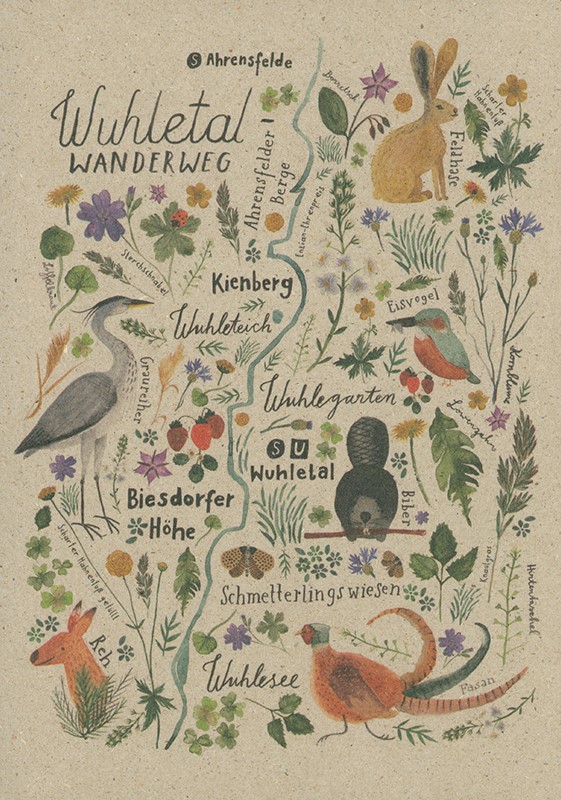 S Ahrensfelde
Wuhletal-
WANDERWEG
Ahrensfelder
Berge
Borretsch
Feldhase
Scharfer
Hahnenfuß
Storchschnabel
Kienberg
Wuhleteich
Eisvogel
Graureiher
Wuhlegarten
Kornblume
Löwenzahn
S U
Wuhletal
Biesdorfer
Höhe
Biber
Knaulgras
Scharfer Hahnenfuß gefüllt
Schmetterlingswiesen
Hirtentäschel
Reh
Wuhlesee
Fasan